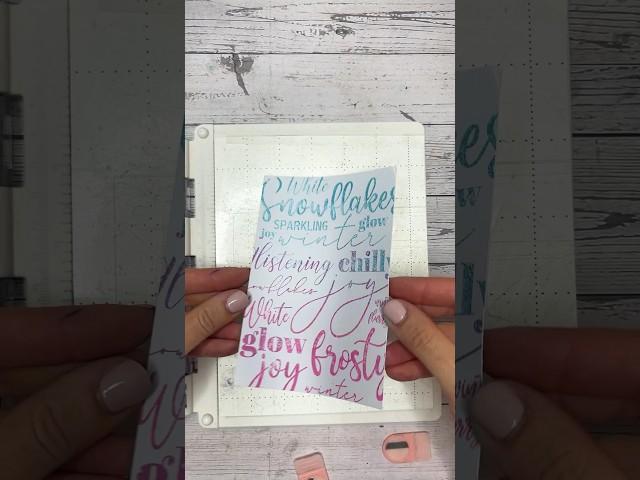 White
Snowflakes
SPARKLING glow
joy winter
listening chilly
joy
White
glow frosty
joy
winter